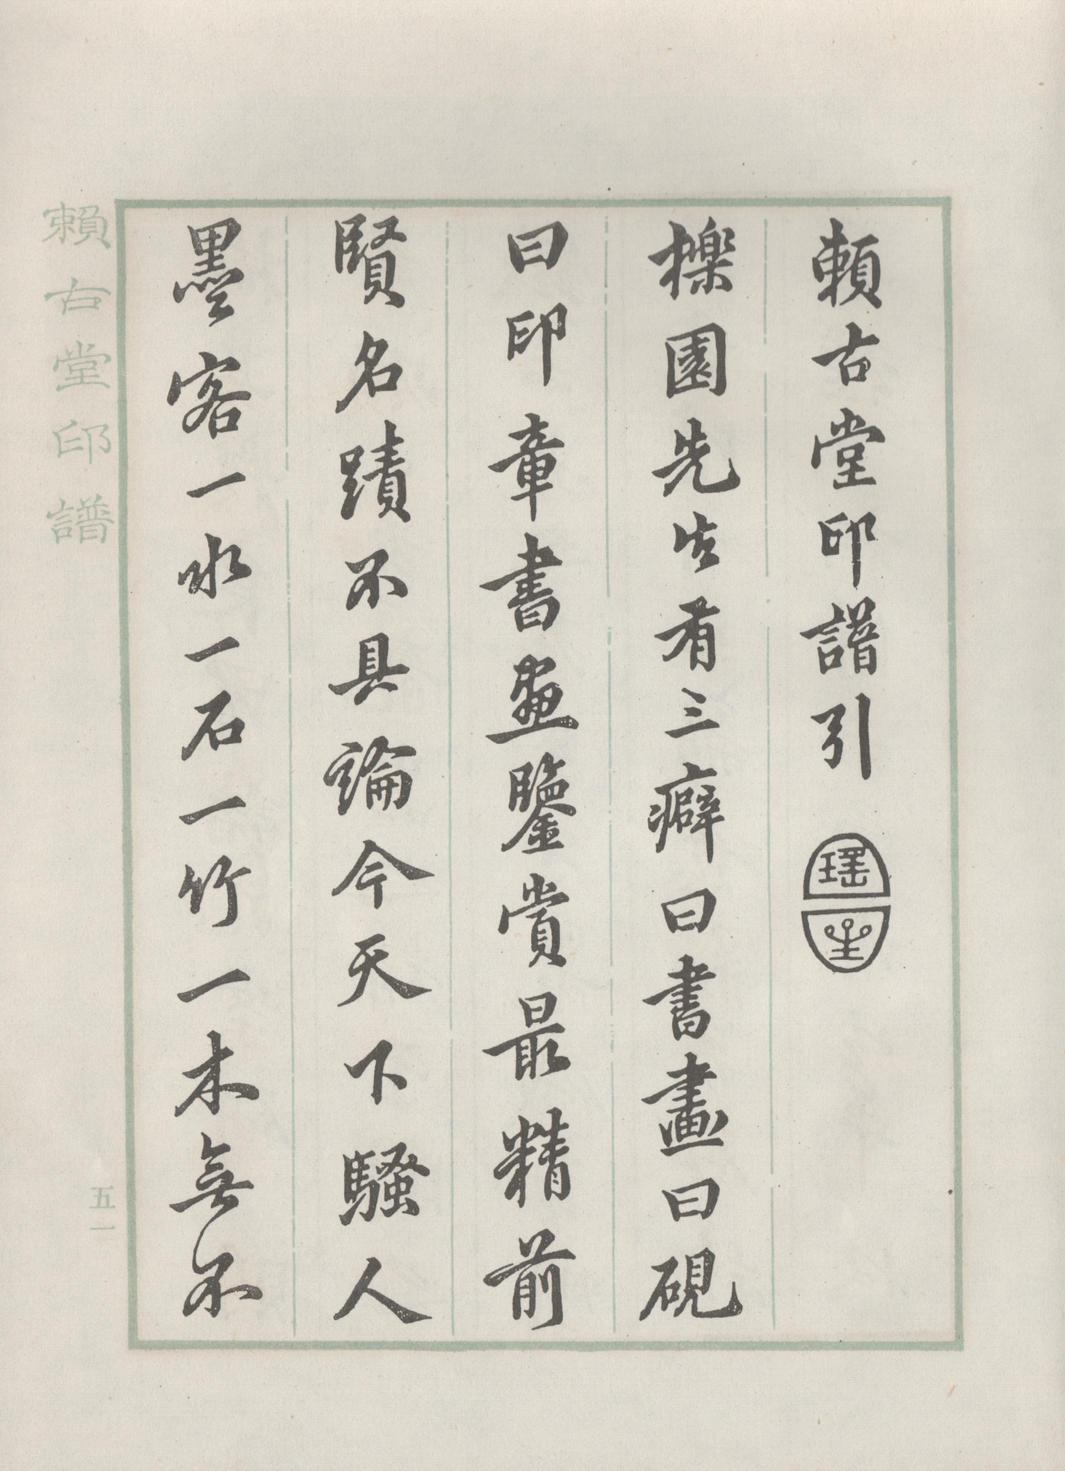 賴古堂印譜引
瑶
櫟園先生有三癖曰書畫曰硯
曰印章書畫鑒賞最精前
賢名蹟不具論今天下騷人
墨客一水一石一竹一木無不
賴古堂印譜
五一